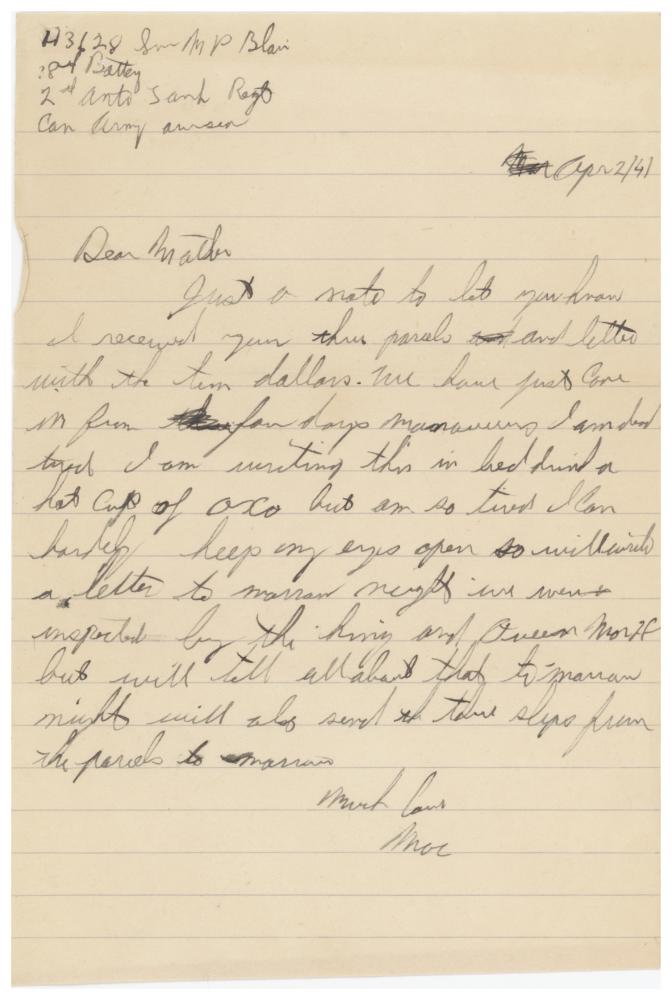 H3628 Gnr M P Blair
Battery
2nd Anti Tank Regt
Can Army overseas
Apr 2/41
Dear Mother
Just a note to let you know
I received your three parcels and letter
with the ten dollars. We have just come
in from few days manouvers I am dead
tired I am writing this in bed drinkin a
hot cup of oxo but am so tired I can
hardly keep my eyes open so will write
a letter to morrow night we were
inspected by the king and Queen
but will tell all about that to-morrow
night will also send the slips from
the parcels to morrow
Much love
Mac